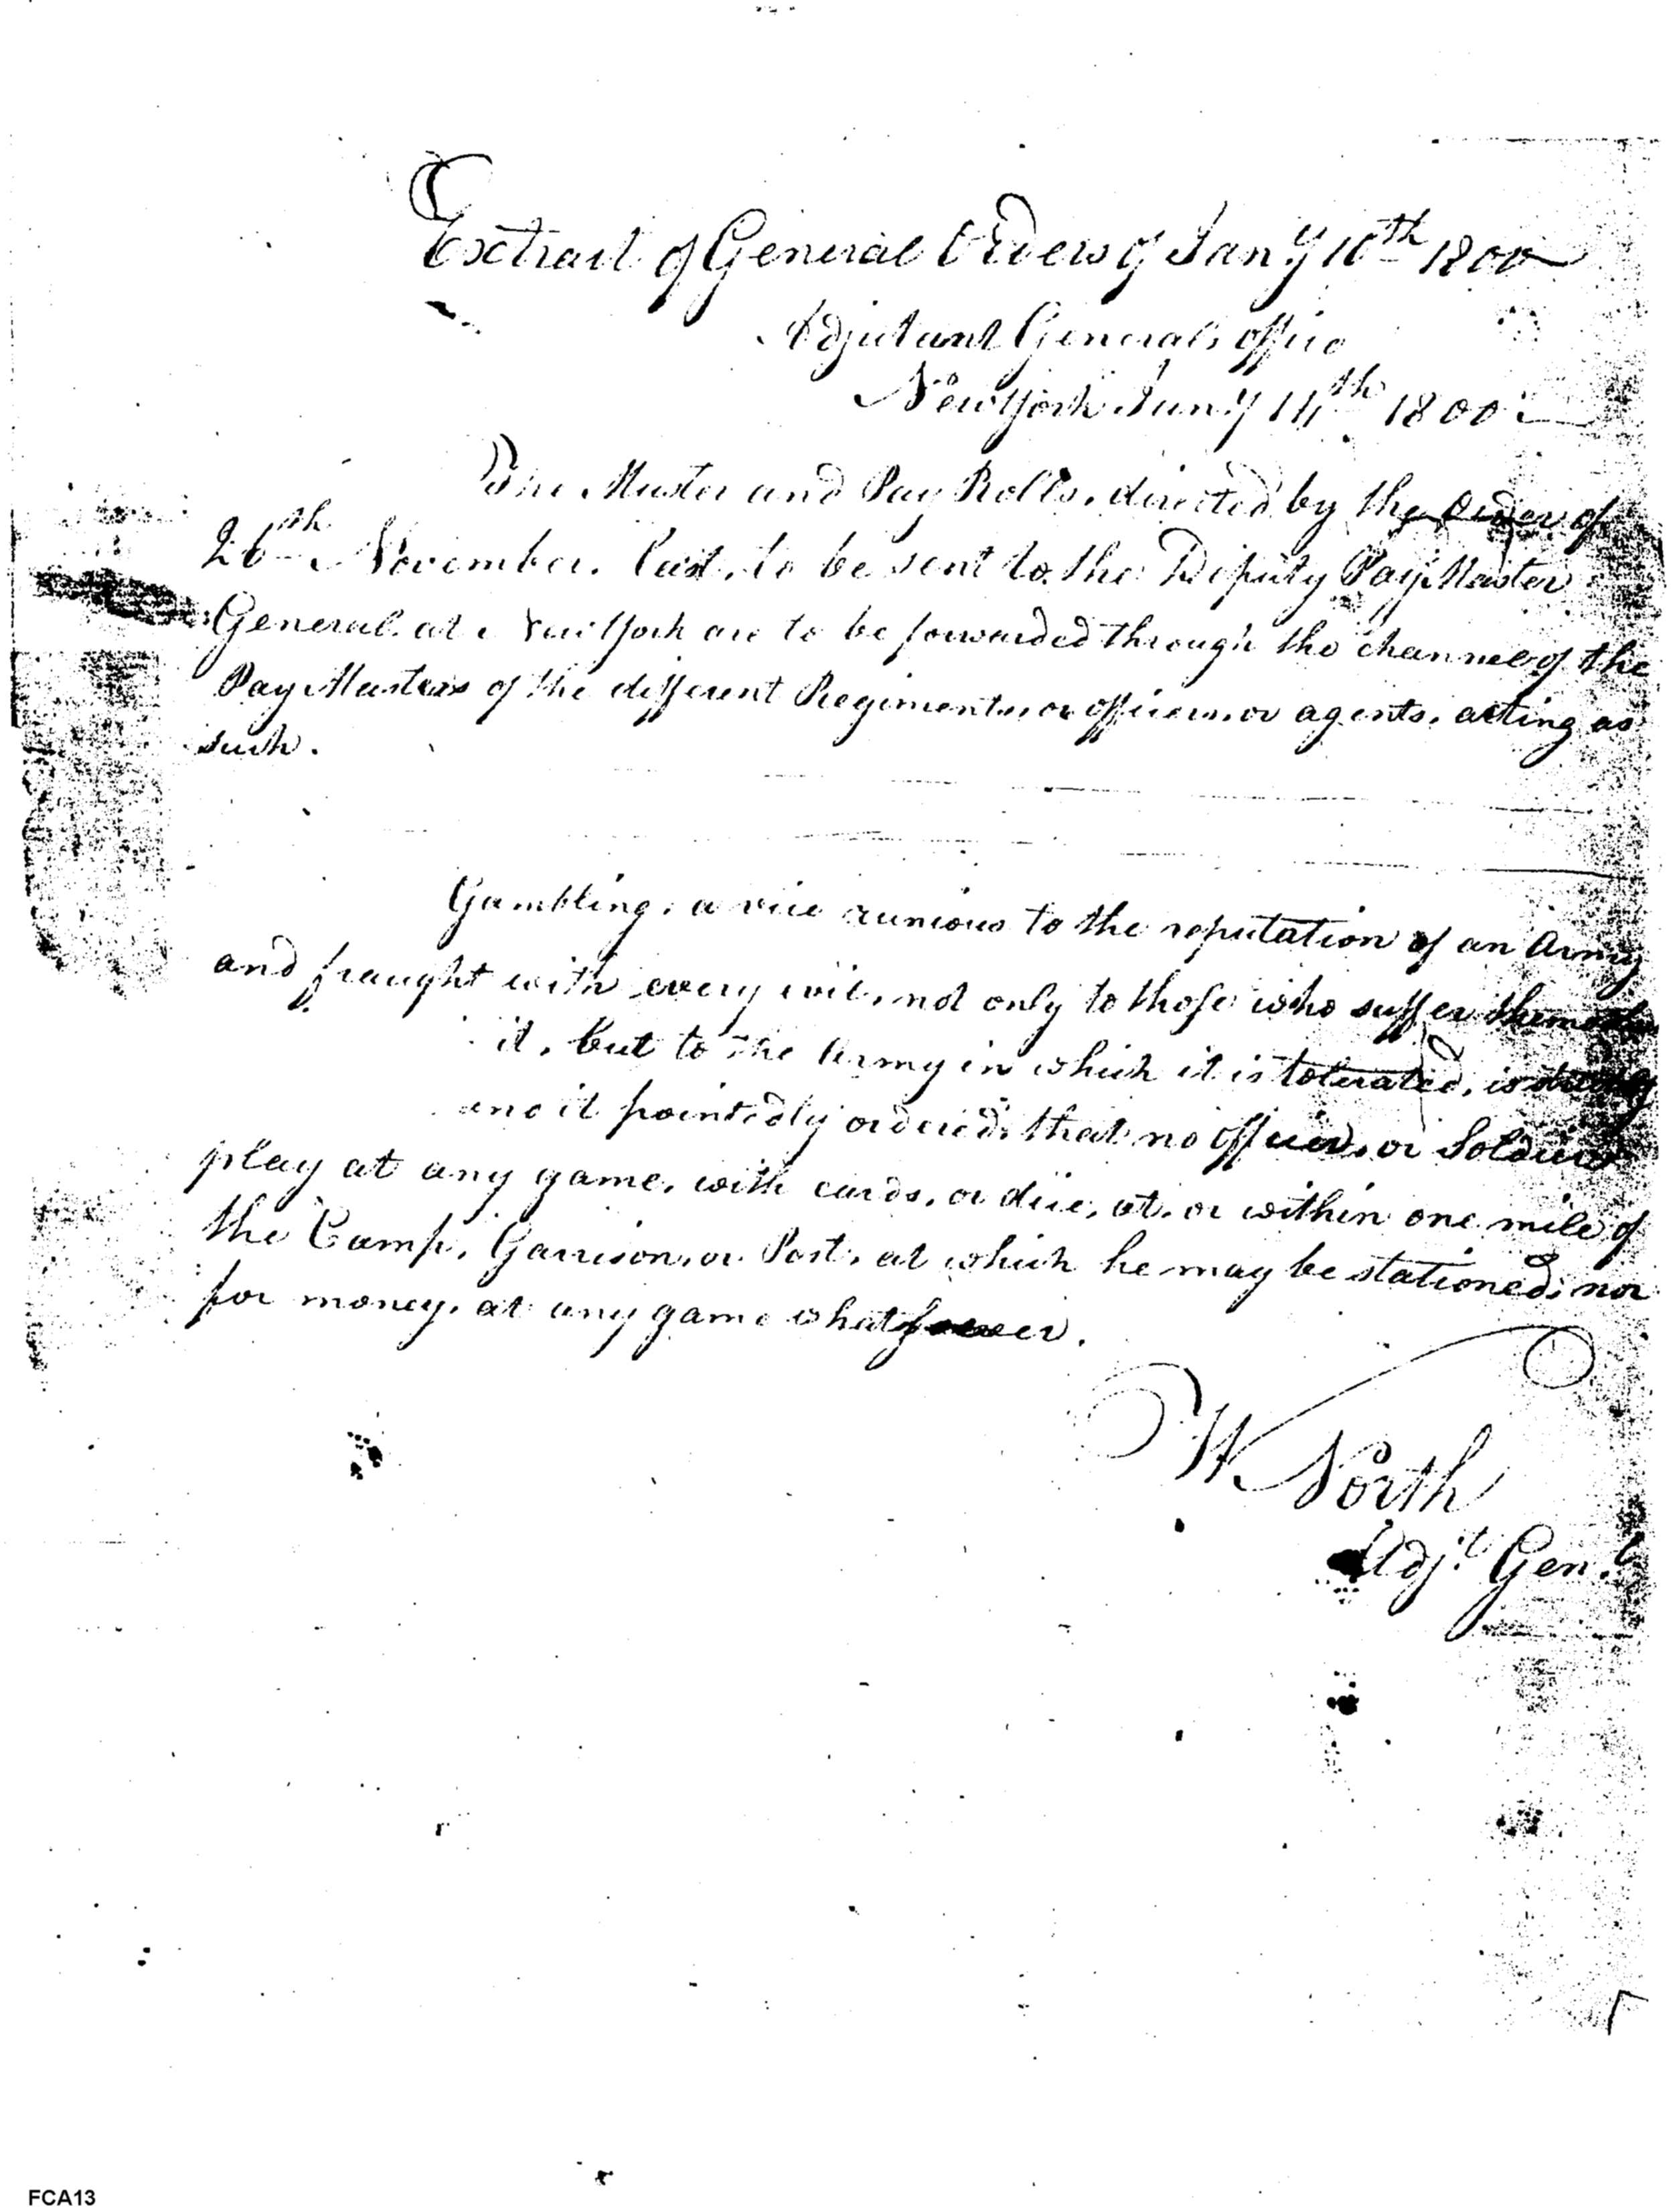 Extract of General Orders of Jany 10th 1800
Adjutant Generals office
New York Jany 14th 1800
The Muster and Pay Rolls, directed by the Order of
26th November. last, to be sent to the Deputy Pay Master
General at New York are to be forwarded through the channel of the
Pay Masters of the different Regiments, or officers, or agents, acting as
such.
Gambling, a vice ruinous to the reputation of an Army
and fraught with every evil, not only to those who suffer
it, but to the Army in which it is tolerated, is
and it pointedly ordered, that no officer, or Soldier
play at any game, with cards, or dice, at, or within one mile of
the Camp, Garrison, or Post, at which he may be stationed, nor
for money, at any game whatsoever.
W North
Adjt Genl
FCA13